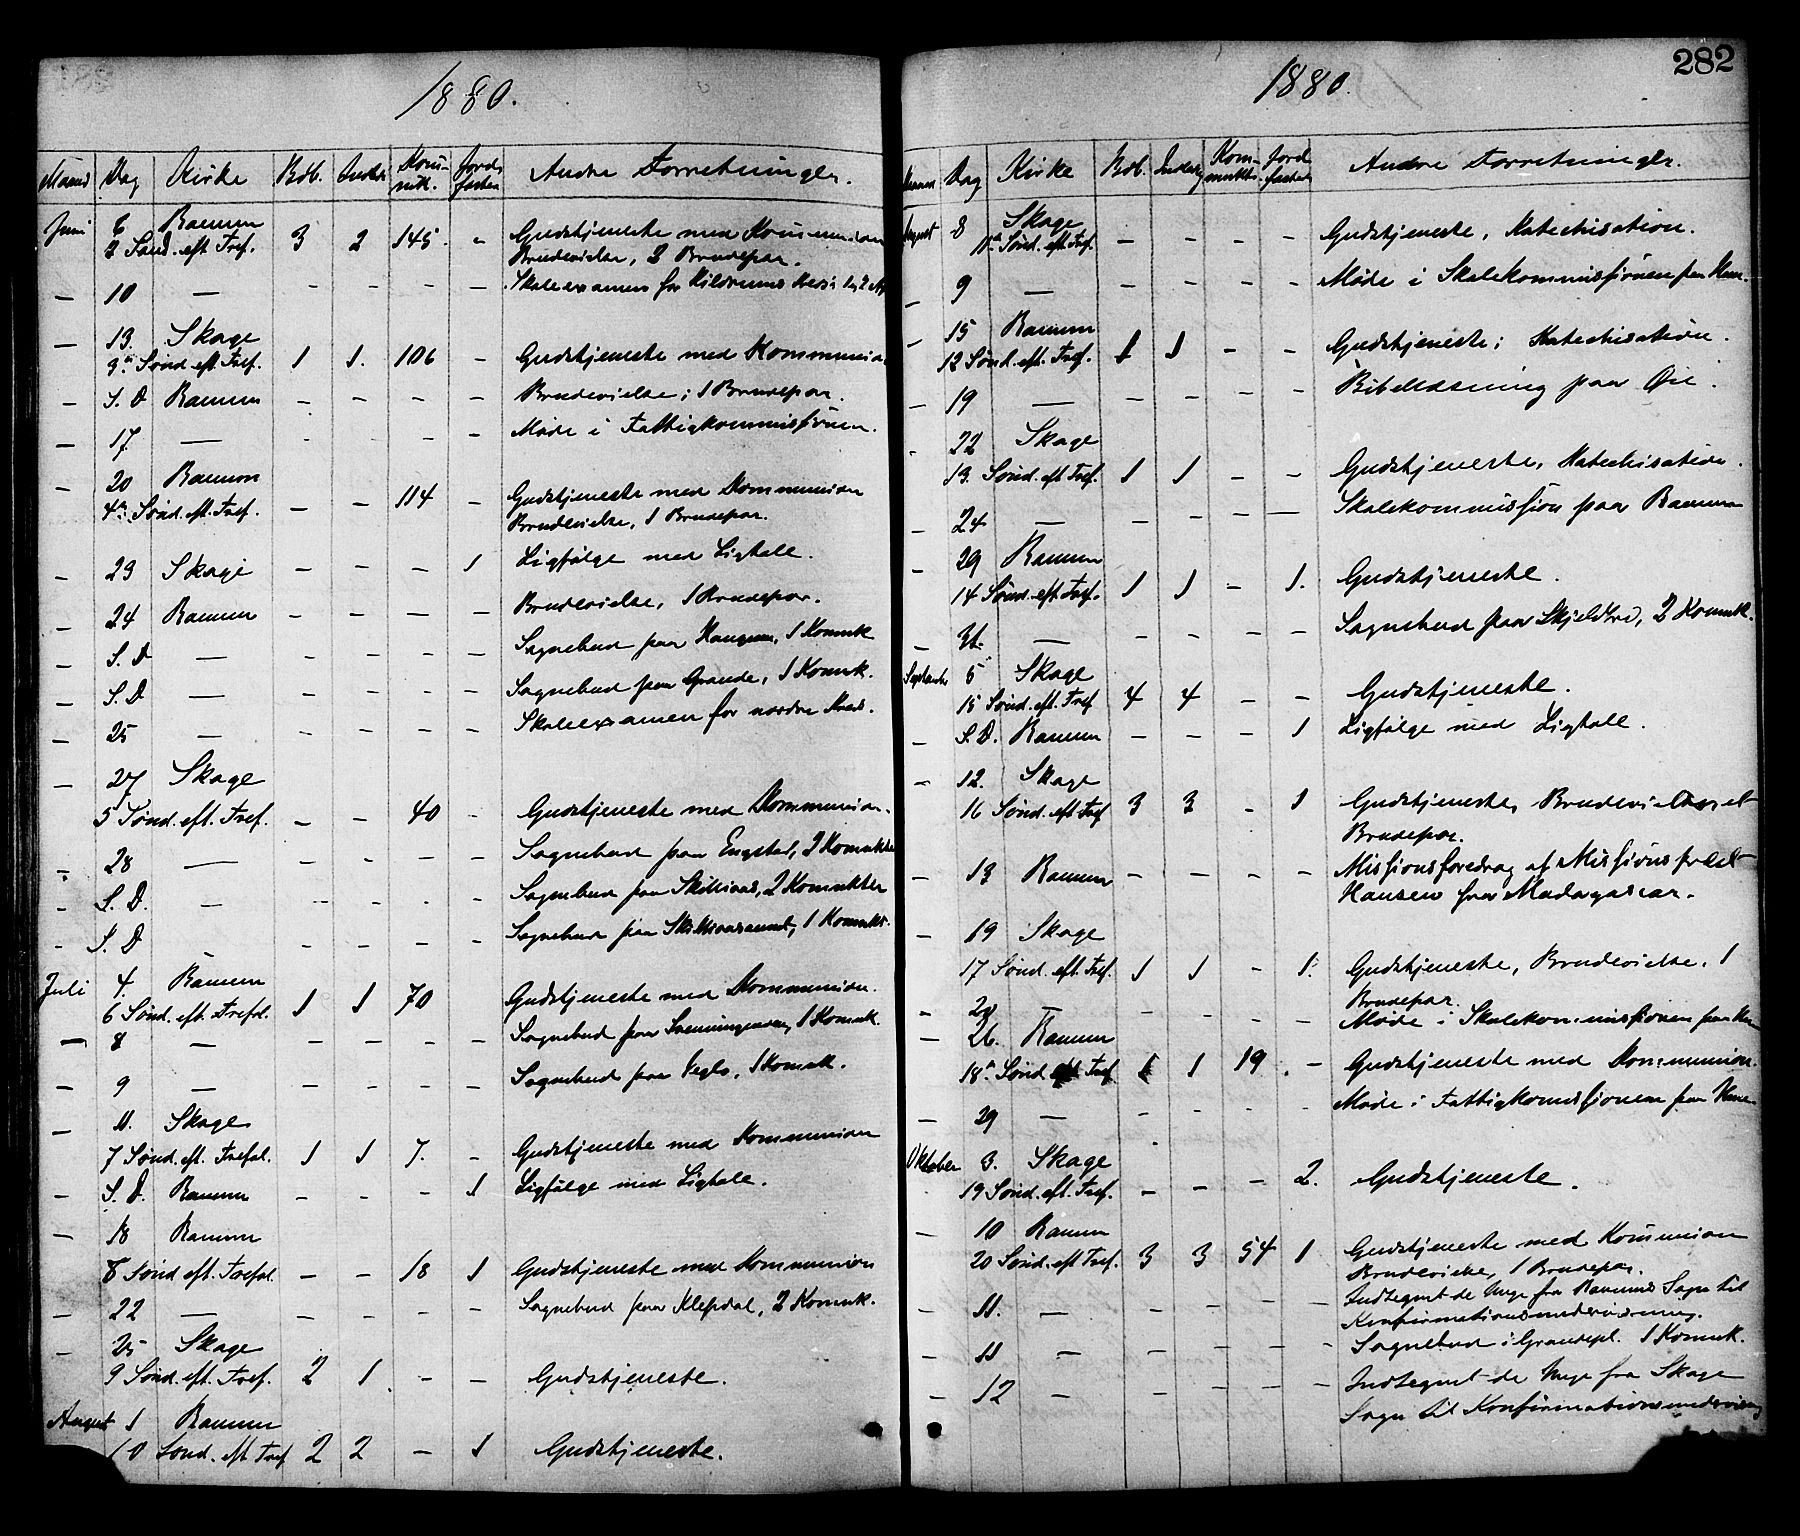 1880.
Maaned Dag Kirke Bdb. Indl. Kom-
mk. Jords
fæstn Andre Forretninger.
Juni 6 Ranum
2 Sønd. eft. Tref. 3 2 145 - Gudstjeneste med Kommunion
Brudevielse, 3 Brudepar.
— 10 — - - - - Skoleexamen for Kildrums Kreds i
— 13. Skage
3die Sønd. eft. Tref. 1 1. 106 - Gudstjeneste med Kommunion
— S. D Ranum - - - - Brudevielse; 1 Brudepar.
— 17. — - - - - Møde i Fattigkommissionen.
— 20 Ranum
4de Sønd. eft. Tref. - - 114 - Gudstjeneste med Kommunion
Brudevielse, 1 Brudepar.
— 23 Skage - - - 1 Ligfølge med Ligtale.
— 24 Ranum - - - - Brudevielse, 1 Brudepar.
— S. D — - - - - Sognebud paa Haugum, 1 Komuk
— S. D — - - - - Sognebud paa Grande, 1 Komuk.
— 25 — - - - - Skoleexamen for nordre Kreds.
— 27 Skage
5 Sønd. eft. Tref. - - 40 - Gudstjeneste med Kommunion.
— 28 — - - - - Sognebud paa Engstad, 2 Komukter
- S. D. — - - - - Sognebud paa Skillivas, 2 Komukter
- S. D — - - - - Sognebud paa 1 Komukt.
Juli 4. Ranum
6 Sønd. eft. Trefol. 1 1 70 - Gudstjeneste med Kommunion.
— 8 — - - - - Sognebud paa 1 Komuk.
— 9 — - - - - Sognebud paa Veglo, 1 Komuk.
— 11. Skage
7 Sønd. eft. Trefol. 1 1 7. - Gudstjeneste med Kommunion
— S. D. Ranum - - - 1 Ligfølge med Ligtale.
— 18 Ranum
8 Sønd eft. Trefol. - - 18 1 Gudstjeneste med Kommunion
— 22 — - - - - Sognebud paa Klepdal, 2 Komuk.
— 25 Skage
9 Sønd. eft. Tref. 2 1. - - Gudstjeneste.
August 1 Ranum
10 Sønd. eft Tref 2 2 - 1 Gudstjeneste.
282
1880.
Maaned Dag Kirke Bdb. Indledg Kom-
munkt. Jord
fæstede Andre Forretninger.
August 8 Skage
11te Sønd. eft. Tref. - - - - Gudstjeneste, Katechisation.
— 9 — - - - - Møde i Skolekommissionen paa Hun.
— 15 Ranum
12 Sønd. eft. Tref. 1 1 - - Gudstjeneste; Katechisation.
— 19 — - - - - Bibellæsning paa Øie.
- 22 Skage
13. Sønd. eft Tref. 1 1 - - Gudstjeneste, Katechisation.
— 24 — - - - — Skolekommission paa Ranum
— 29 Ranum
14 Sønd. eft Tref. 1 1 - 1. Gudstjeneste.
— 31. — - - - - Sognebud paa 2 Komuk.
September 5 Skage
15 Sønd. eft. Tref 4 4 - - Gudstjeneste.
— S. D. Ranum - - - 1 Ligfølge med Ligtale.
— 12. Skage
16 Sønd. eft Tref 3 3 - 1 Gudstjeneste, Brudevielse, et
Brudepar.
— 13 Ranum - - - - Missionsforedrag af Missionsprest
Hansen fra Madagascar.
— 19 Skage
17 Sønd. eft. Tref. 1 1 - 1. Gudstjeneste, Brudevielse. 1
Brudepar.
— — - - - - Møde i Skolekommissionen paa Hun
— 26. Ranum
18de Sønd eft Tref 1 1 19 . - Gudstjeneste med Kommunion.
— 29 — - - - - Møde i Fattigkomissionen paa Hun
Oktober 3. Skage
19 Sønd. eft. Tref. - - - 2. Gudstjeneste.
— 10 Ranum
20 Sønd. eft Tref. 3 3 54 1 Gudstjeneste med Komunion
Brudevielse, 1 Brudepar.
— 11. — - - - - Indtegnet de Unge fra Ranums Sogn til
Konfirmationsundervisning.
— 11 — - - - - Sognebud i Grandepl. 1 Komuk.
— 12 — - - - - Indtegnet de Unge fra Skage
Sogn til Konfirmationsundervisning